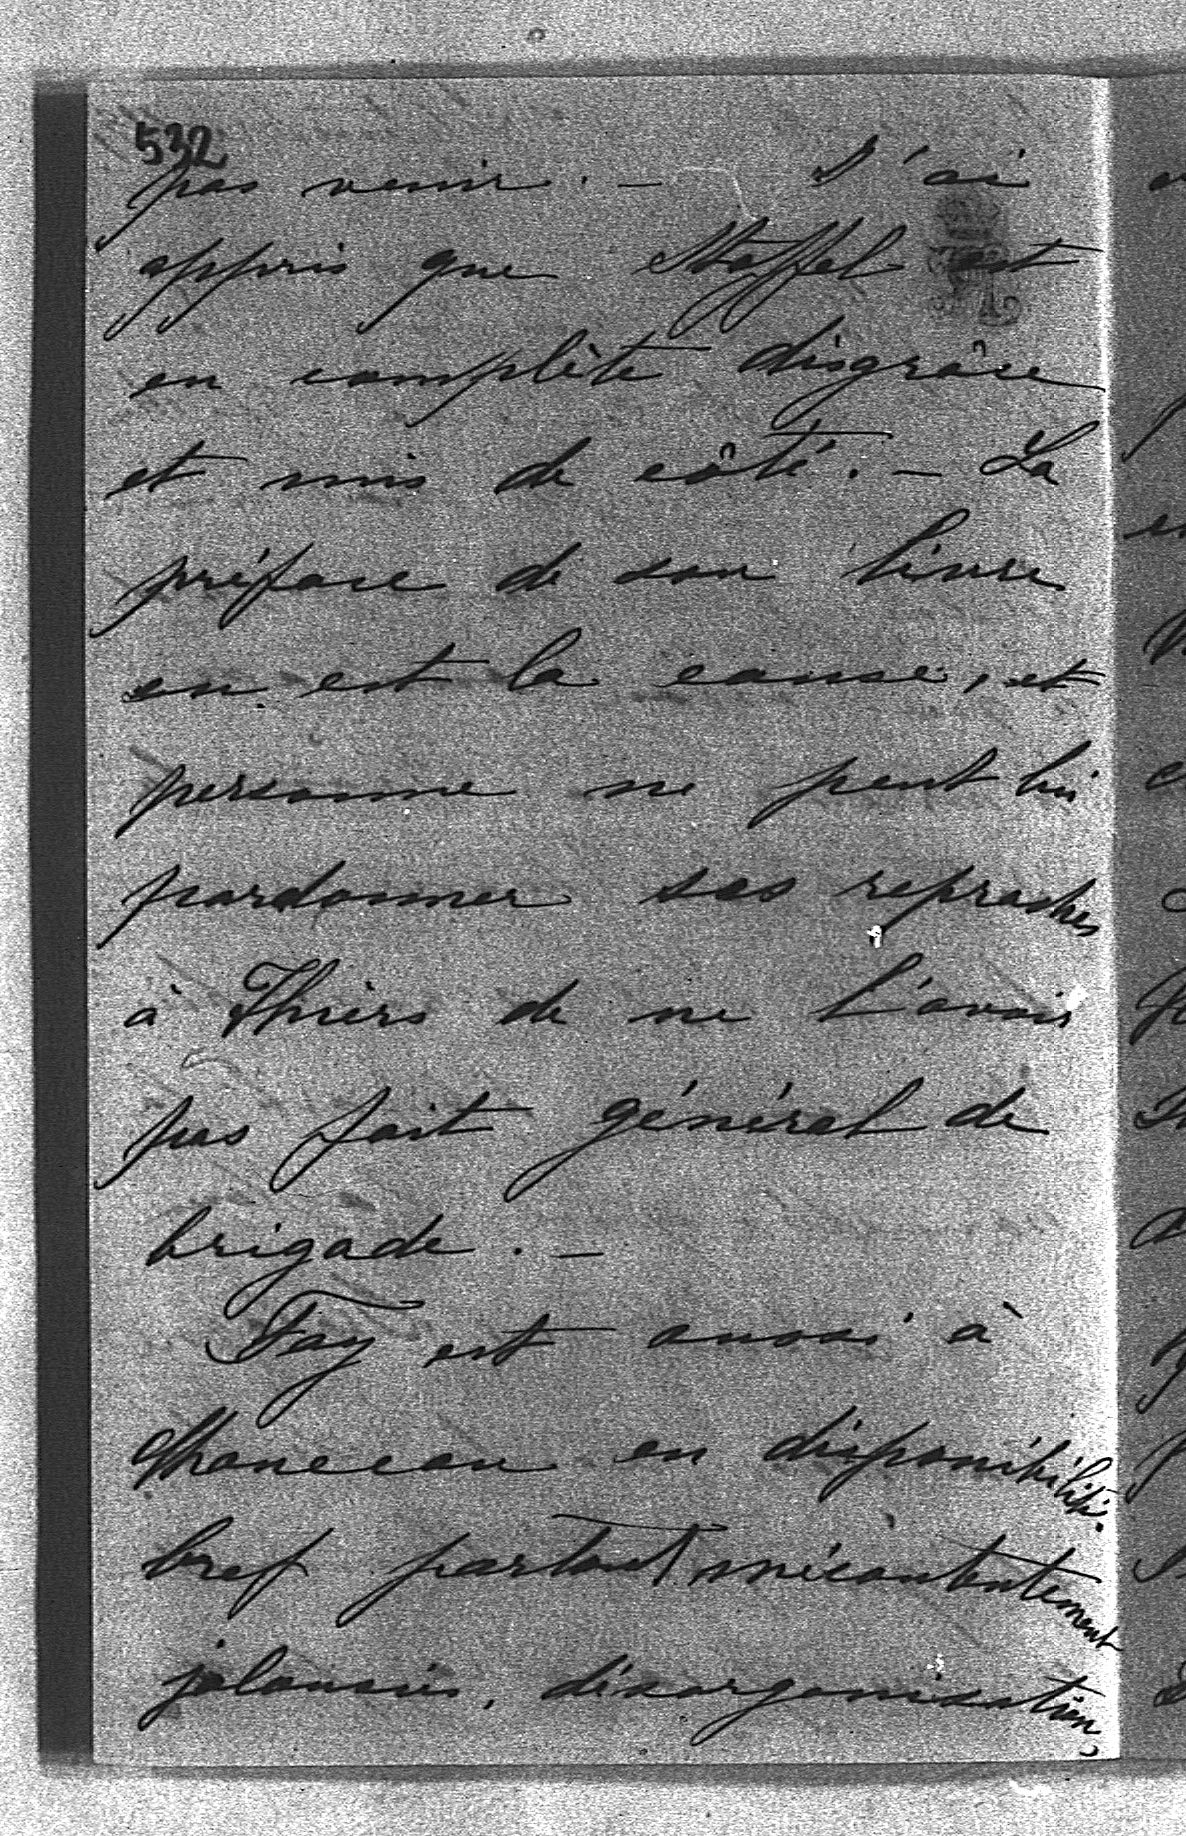 532
pas venir. — J'ai
appris que Stoffel est
en complète disgrâce
et mis de côté. — La
préface de son livre
en est la cause, et
personne ne peut lui
pardonner ses reproches
à Thiers de ne l'avoir
pas fait général de
brigade. —
Fay est aussi à
en disponibilité.
bref partout mécontentement
jalousies, désorganisation,